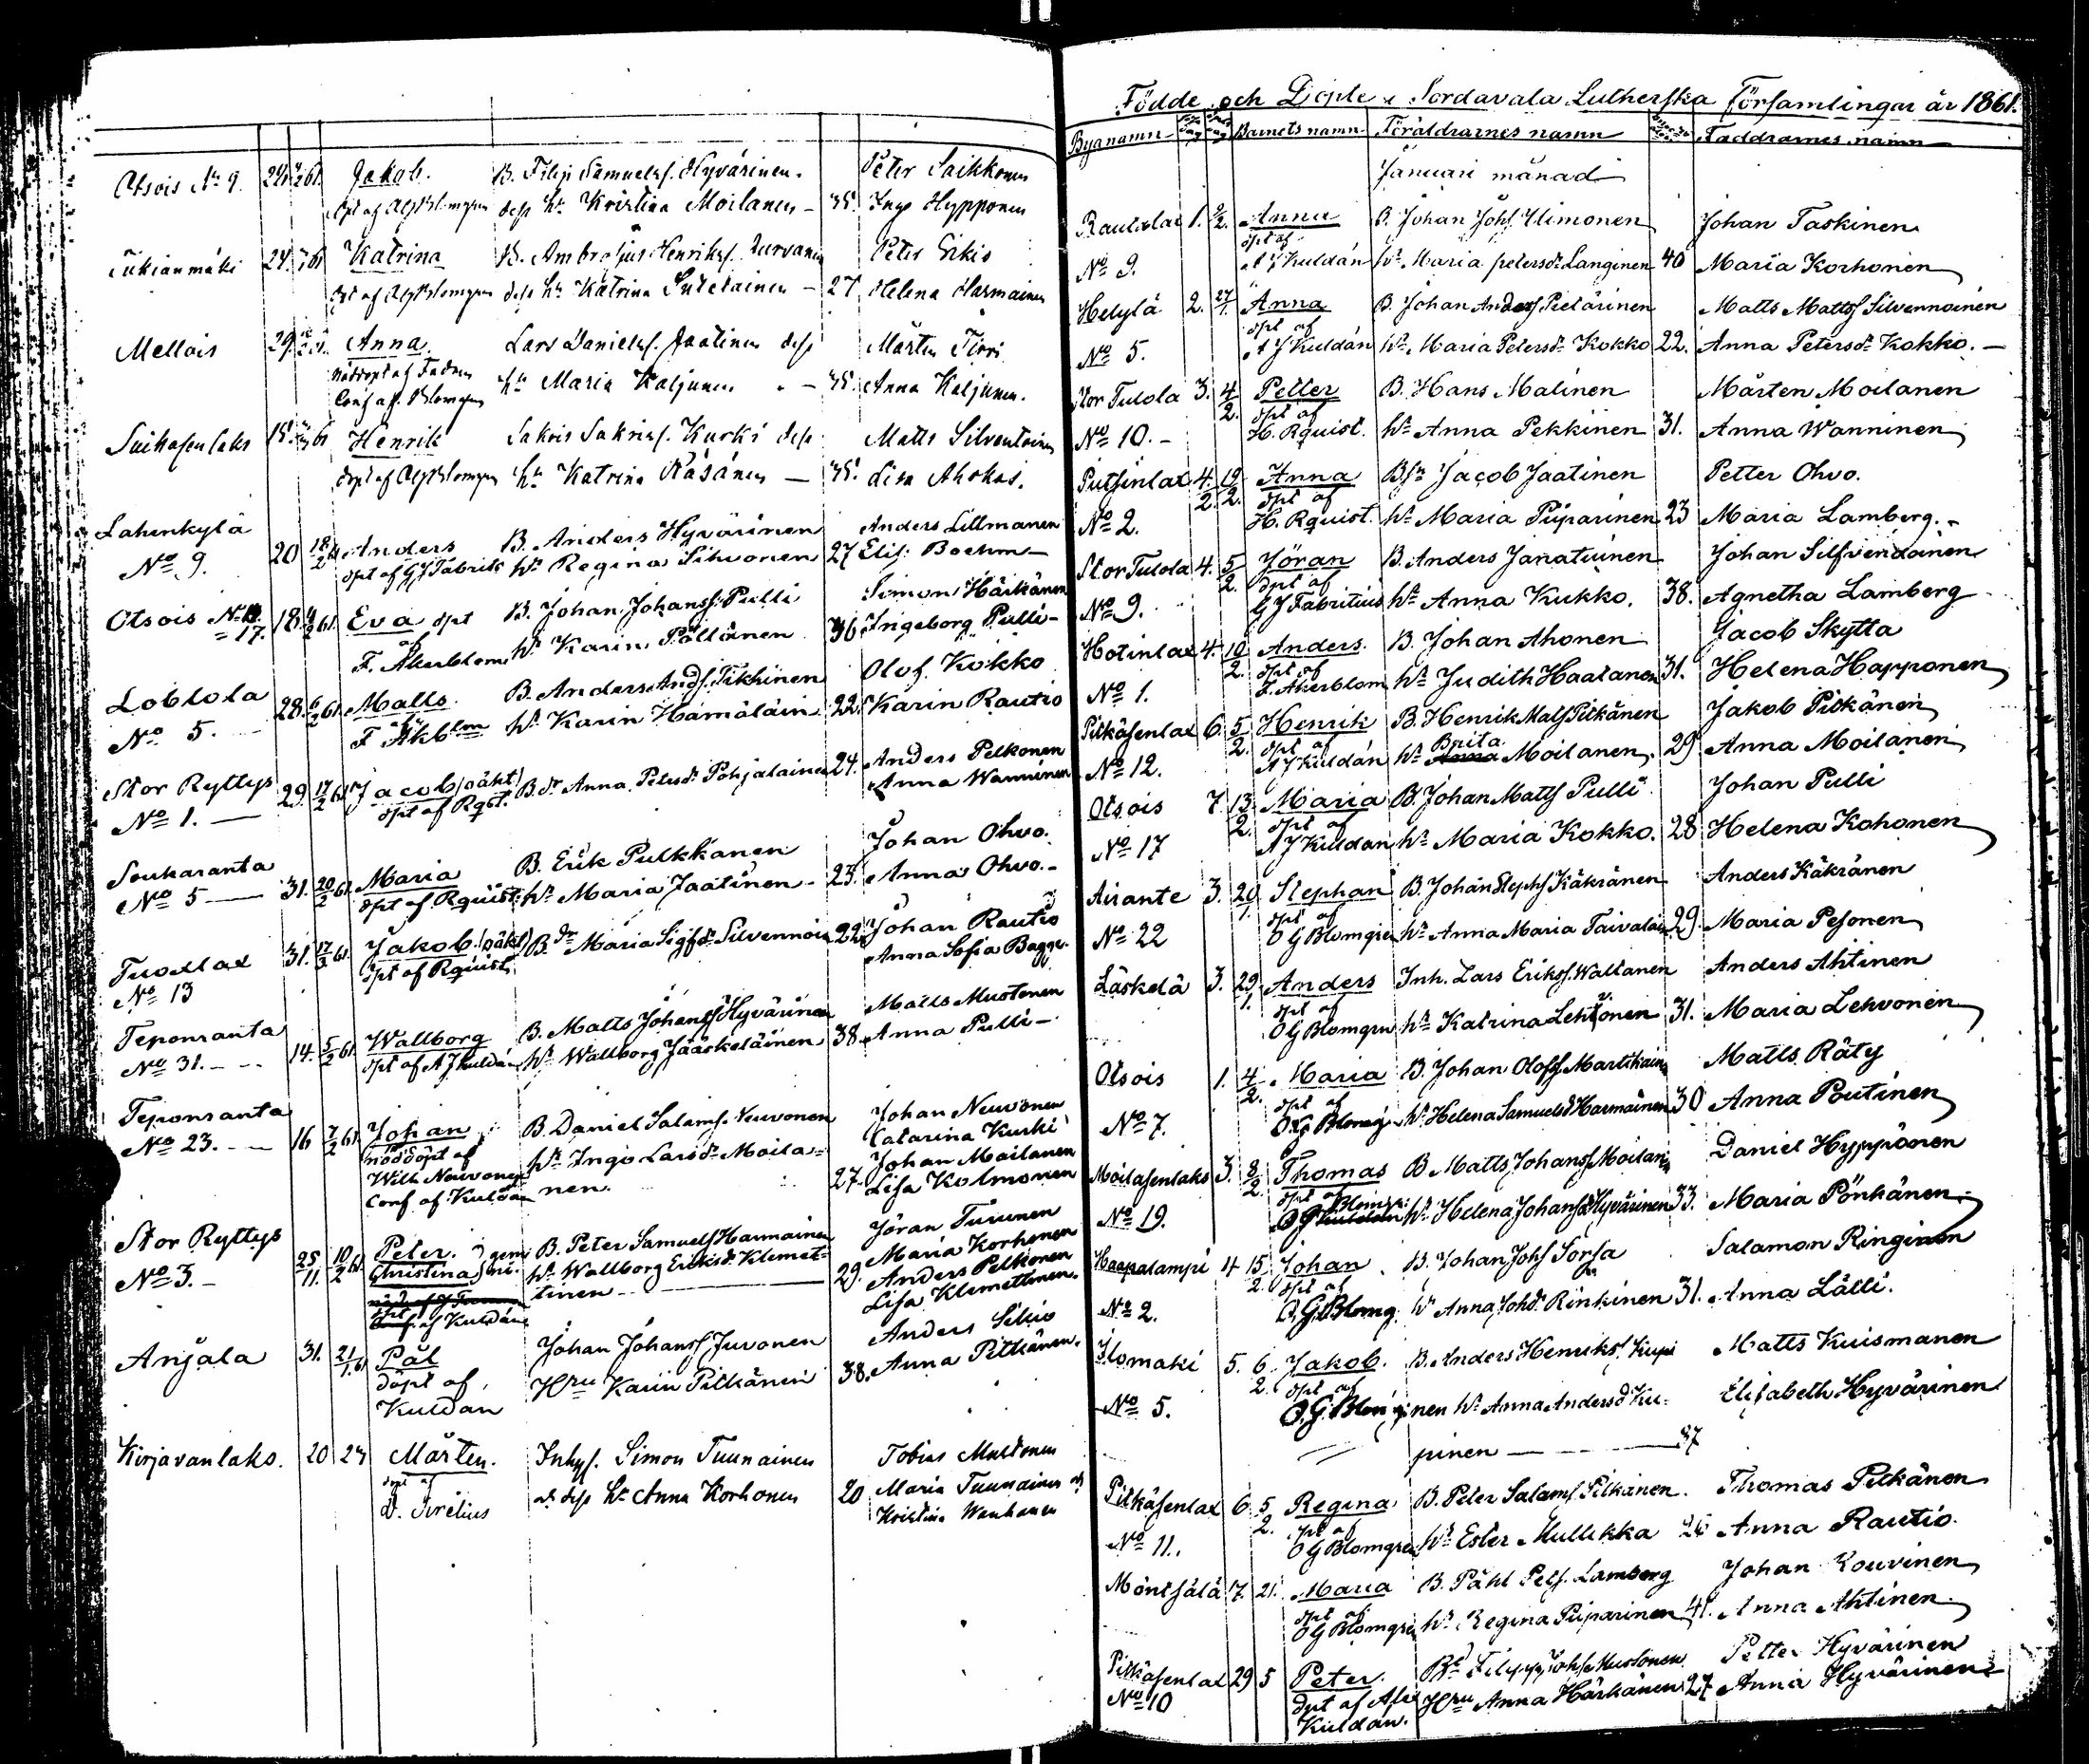 Otsois No 9. 24. 61. Jakob. B. Filip Samuelss. Hyvärinen. Peter Saikkonen
dpt af Blomgren dess hu Kristina Moilanen - 35. Inga Hypponen
24. 61 Katrina B. Ambrosius Henrikss. Peter
dpt af Blomgren dess hu Katrina - 27 Helena Harmainen
Mellois 29. Anna Lars Danielss. Jaatinen dess Mårten Tirri
Nöddopt af
Conf af. Blomgren hu Maria Kaljunen - 35. Anna Kaljunen.
15. 61 Henrik Sakris Sakriss. Kurki dess Matts Silventoinen
dopt af Blomgren hu Katrina Räsänen — 35. Lisa Ahokas.
Lahenkylä
No 9. 20 18/2 61 Anders B. Anders Hyvärinen Anders Lillmanen
dpt af G J Fabrit hu Regina Sihvonen 27 Elis: Boehm —
Otsois No
= 17. 18. 4/2 61. Eva dpt B. Johan Johanss: Pulli Simon Härkänen
af
F. Åkerblom hu Karin Pöllänen 36 Ingeborg Pulli -
Loblola
No 5. 28. 6/2 61. Matts B. Anders Ands. Tikkinen Olof Kokko
af
F Åkblm hu Karin Hämäläin 22. Karin Rautio
Stor Ryttys
No 1. — 29. 17/2 61. Jacob (oäkt) B.dr Anna Petersdr Pohjalainen 24. Anders Pelkonen
dpt af Rqst. Anna Wanninen
Soukaranta
No 5 — 31. 20/2 61. Maria B. Erik Pulkkanen Johan Ohvo.
dpt af Rquist: hu Maria Jaatinen - 23. Anna Ohvo. -
Tuoxlax
No 13 31. 17/3 61. Jakob. (oäkt) B.dr Maria Sigfdr Silvennoin 22. Johan Rautio
dpt af Rquist Anna Sofia Bagge.
Teponranta
No 31. - - 14. 5/2 61. Wallborg B. Matts Johanss Hyvärinen Matts Mustonen
dpt af A J Kuldán hu Wallborg Jääskeläinen 38. Anna Pulli -
Teponranta
No 23. - - 16 7/2 61. Johan B. Daniel Salams. Neuvonen Johan Neuvonen
nöddöpt af Catarina Kurki
Wilh Neuvonen hu Inga Larsdr Moila= Johan Moilanen
Conf. af Kuldán nen. 27. Lisa Kolmonen
Stor Ryttys
No 3. - 25/11. 10/2 61. Peter. B. Peter Samuels Harmainen Jöran Turunen
Christina hu Wallborg Eriksdr Klemet- Maria Korhonen
tinen 29. Anders Pelkonen
dpt af Kuldán Lisa Klemettinen.
Anjala 31. 21/1 61 Pål Johan Johanss Juvonen Anders Silius
döpt af Hru Karin Pitkänen 38. Anna Pitkänen.
Kuldan
Kirjavanlaks. 20 24 Mårten. Inhys. Simon Tuunainen Tobias Mustonen
dpt af
D. Sirelius o. dess hu Anna Korhonen 20 Maria Tuunainen o
Kristina Wanhanen
Födde och Döpte i Sordavala Lutherska Församlingar år 1861.
Byanamn Barnets namn Föräldrarnes namn Faddrarnes namn
Januari månad
Rautalax 1. 2/2. Anna B. Johan Johs Ilimonen Johan Taskinen
No 9. dpt af
A J Kuldán hu Maria petersdr Langinen 40 Maria Korhonen
Helylä 2. 27/1. Anna B. Johan Anders Pietarinen Matts Mattss Silvennoinen
No 5. dpt af
A J Kuldán hu Maria Petersdr Kokko 22. Anna Petersdr Kokko. -
Stor Tulola 3. 4/2. Petter B. Hans Malinen Mårten Moilanen
No 10. - dpt af
H. Rquist. hu Anna Pekkinen 31. Anna Wanninen
Putsinlax 4/2. 19/2. Anna Bsn Jacob Jaatinen Petter Ohvo.
No 2. dpt af
H. Rquist. hu Maria Piiparinen 23 Maria Lamberg. -
Stor Tulola 4. 5/2. Jöran B. Anders Janatuinen Johan Silfvendoinen
No 9. dpt af
G J Fabritius hu Anna Kukko. 38. Agnetha Lamberg
Hotinlax 4. 10/2. Anders. B. Johan Ahonen Jacob Skytta
No 1. dpt af
F. Åkerblom hu Judith Haatanen 31. Helena Happonen
Pitkäsenlax 6. 5/2. Henrik B. Henrik Mats Pitkänen Jakob Pitkänen
No 12. dpt af
A J Kuldán hu Brita Moilanen. 29 Anna Moilanen
Otsois 7. 13/2. Maria B. Johan Matts Pulli Johan Pulli
No 17 dpt af
A J Kuldán hu Maria Kokko. 28 Helena Kohonen
Airante 3. 20/1. Stephan B. Johan Stephs Käkränen Anders Käkränen
No 22 dpt af
O G Blomgren hu Anna Maria Taivalain 29. Maria Pesonen
Läskelä 3. 29/1. Anders Inh. Lars Erikss. Waltanen Anders Ahtinen
dpt af
O G Blomgrn hu Katrina Lehtonen 31. Maria Lehvonen
Otsois 1. 4/2. Maria B. Johan Olofs Martikain Matts Räty
No 7. dpt af
O. G Blomg hu Helena Samuelsd Harmainen 30 Anna Poutinen
Moilasenlaks 3. 8/2. Thomas B Matts Johanss Moilan Daniel Hyppönen
No 19. dpt af Blomg
O G hu Helena Johansd Hyvärinen 33. Maria Pönkänen
Haapalampi 4 15/2. Johan. B. Johan Johs Sorsa Salamon Ringinen
No 2. dpt af
O. G. Blomg. hu Anna Johdr Rinkinen 31. Anna Lälli.
Ilomäki 5. 6/2. Jakob. B. Anders Henrikss. Kupi Matts Kuismanen
No 5. dpt af
O. G. Blomg nen hu Anna Andersd Ku= Elisabeth Hyvärinen
pinen — 37
Pitkäsenlax 6 5/2. Regina B. Peter Salams Pitkänen. Thomas Pitkänen
No 11. dpt af
O G Blomgren hu Ester Mullikka 26 Anna Rautio.
Möntsälä 7. 21. Maria B. Påhl Pets. Lamberg Johan Kouvinen
dpt af
O G Blomgre hu Regina Piiparinen 41. Anna Ahtinen.
Pitkäsenlax 29 5 Peter. Bd Filipp Johs Mustonen. Petter Hyvärinen
No 10 dpt af Afr Hru Anna Härkänen 27 Anna Hyvärinen
Kuldan.